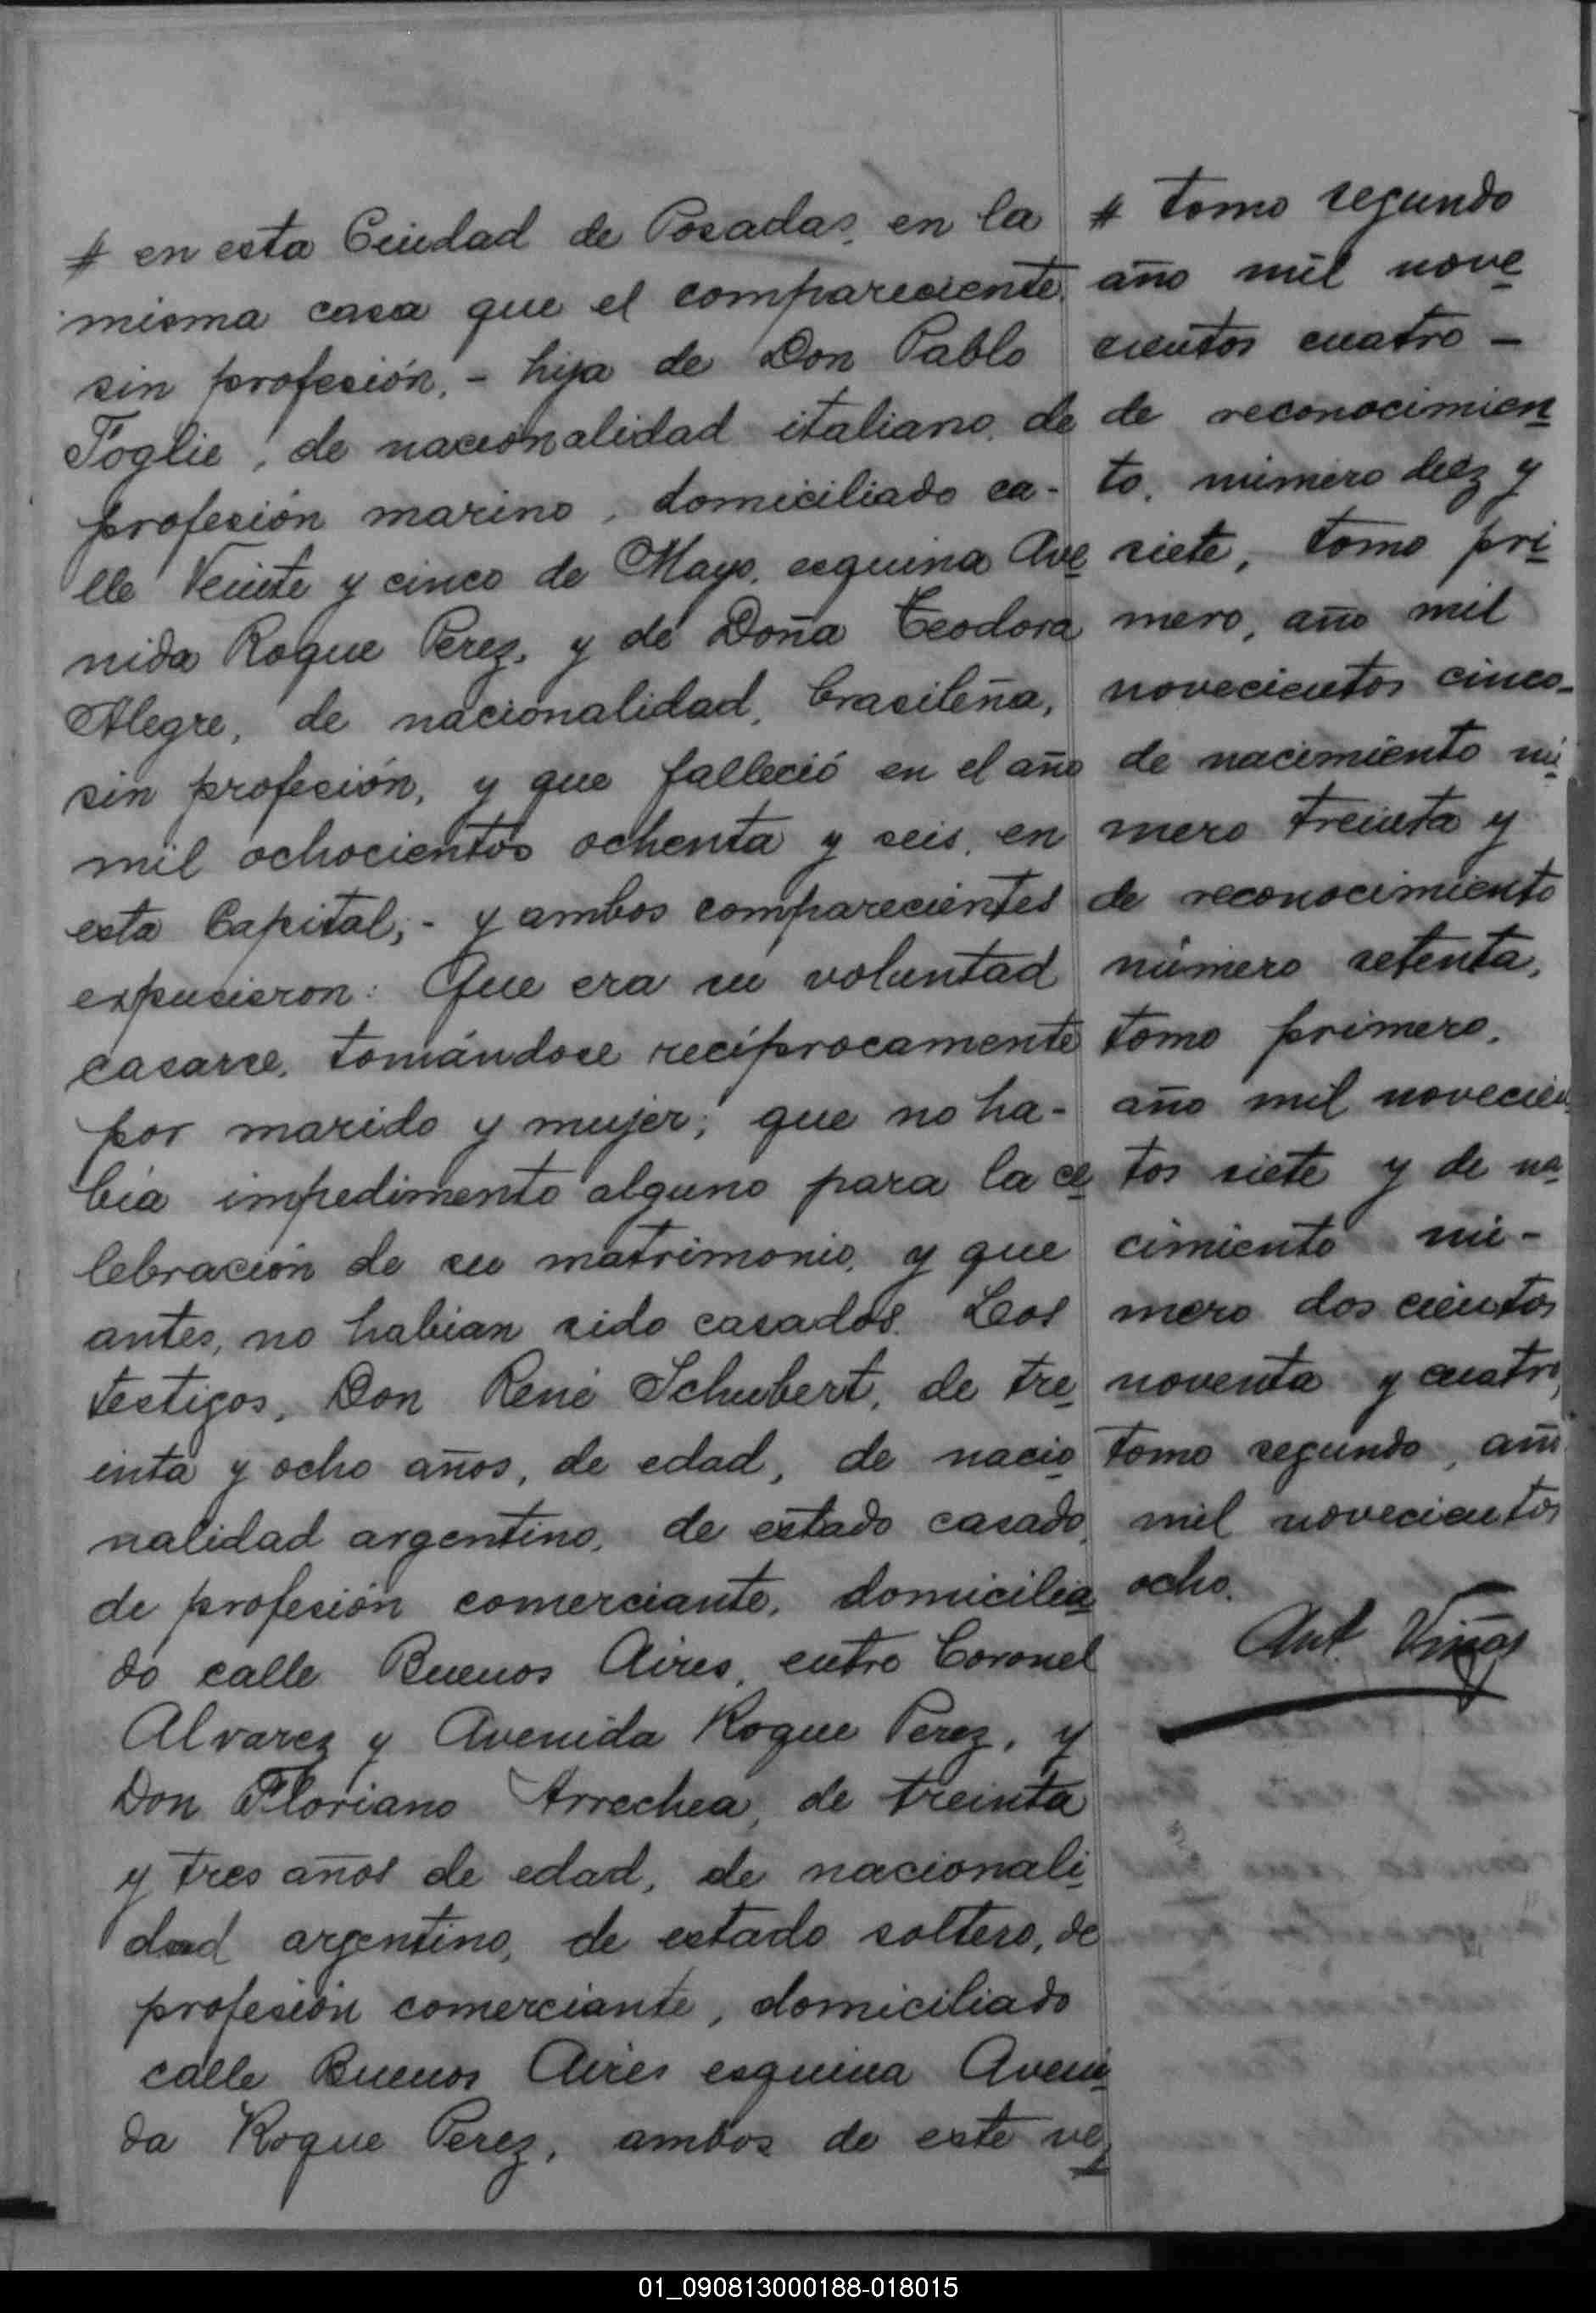 # en esta Ciudad de Posadas, en la
misma casa que el compareciente,
sin profesión, - hija de Don Pablo
Foglie, de nacionalidad italiano, de
profesión marino, domiciliado ca-
lle Veinte y cinco de Mayo, esquina Ave
nida Roque Perez, y de Doña Teodora
Alegre, de nacionalidad, brasileña,
sin profesión, y que falleció en el año
mil ochocientos ochenta y seis, en
esta Capital; - y ambos comparecientes
expusieron: Que era su voluntad
casarse, tomándose recíprocamente
por marido y mujer; que no ha-
bía impedimento alguno para la ce
lebración de su matrimonio, y que
antes, no habian sido casados. Los
testigos, Don René Schubert, de tre
inta y ocho años, de edad, de nacio
nalidad argentino, de estado casado,
de profesión comerciante, domicilia
do calle Buenos Aires, entre Coronel
Alvarez y Avenida Roque Perez, y
Don Floriano Arrechea, de treinta
y tres años de edad, de nacionali
dad argentino, de estado soltero, de
profesión comerciante, domiciliado
calle Buenos Aires esquina Aveni
da Roque Perez, ambos de este ve
# tomo segundo
año mil nove
cientos cuatro -
de reconocimien
to, número diez y
siete, tomo pri
mero, año mil
novecientos cinco-
de nacimiento nú
mero treinta y
de reconocimiento
número setenta,
tomo primero,
año mil novecien
tos siete y de na
cimiento nú-
mero dos cientos
noventa y cuatro,
tomo segundo, año
mil novecientos
ocho.
Ant. Viñas
01_090813000188-018015